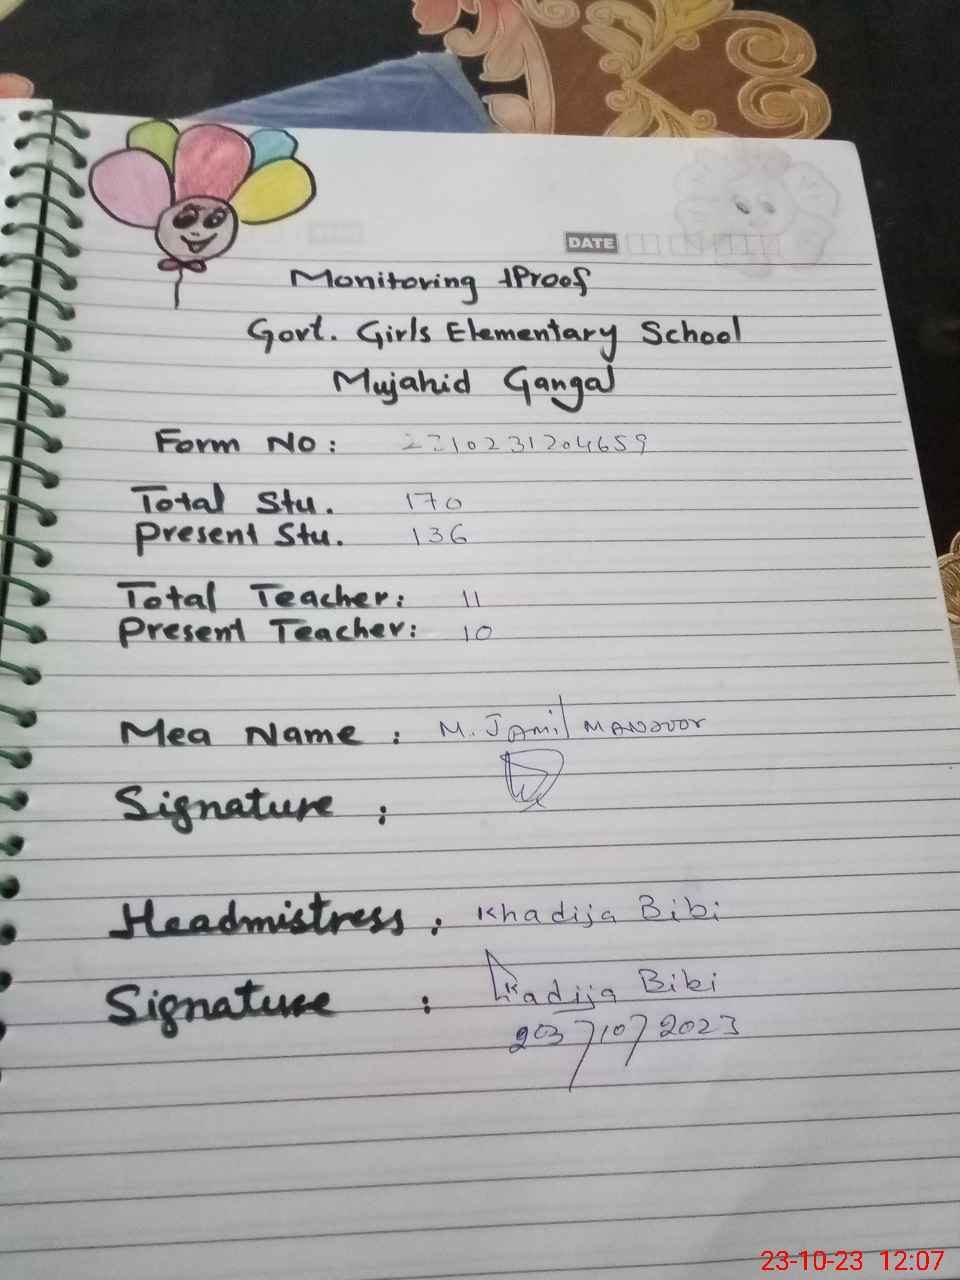 DATE
Monitoring Proof
Govt. Girls Elementary School
Mujahid Gangal
Form No: 2310231204659
Total Stu. 170
Present Stu. 136
Total Teacher: 11
Present Teacher: 10
Mea Name : M. Jamil Manzoor
Signature :
Headmistress : Khadija Bibi
Signature : Khadija Bibi
23/10/2023
23-10-23 12:07